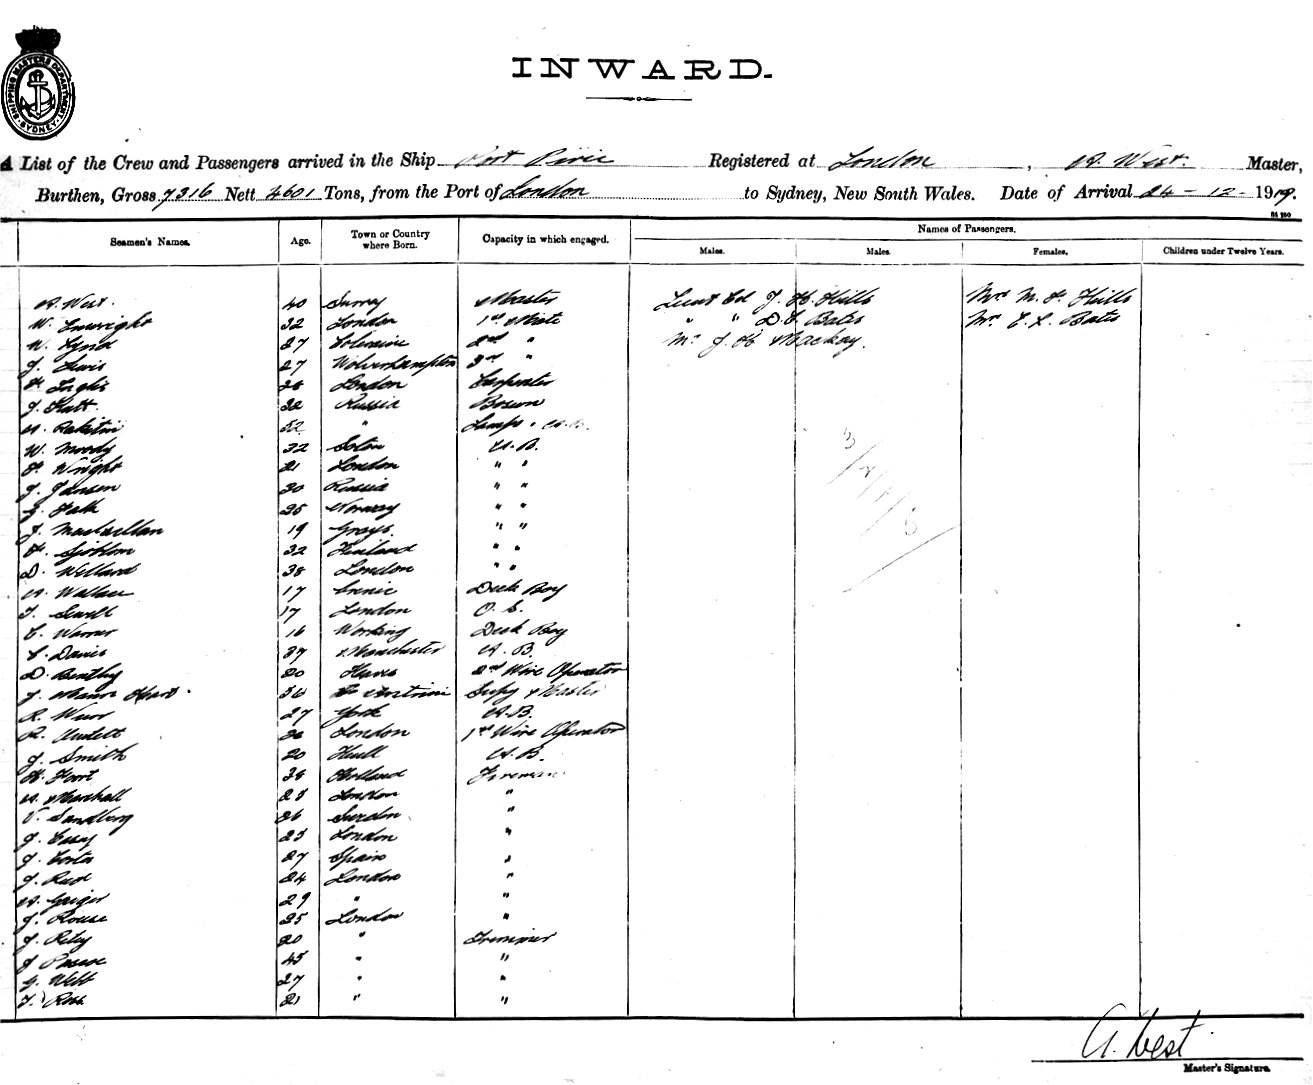 SHIPPING MASTERS DEPARTMENT SYDNEY
INWARD.
A List of the Crew and Passengers arrived in the Ship Port Pirie Registered at London, A. West. Master,
Burthen, Gross 7316 Nett 4601 Tons, from the Port of London to Sydney, New South Wales. Date of Arrival 24-12-1919.
Names of Passengers.
Seamen's Names. Age. Town or Country where Born. Capacity in which engaged. Males. Males. Females. Children under Twelve Years.
A. West. 40 Surrey Master Lieut Col J. H. Hills Mrs M. F. Hills
W. 32 London 1st Mate " " D. C. Bates Mrs E. L. Bates
W. Lynd 27 Coleraine 2nd " Mr J. H Mackay.
J. Lewis 27 Wolverhampton 3rd "
F. Inglis 28 London Carpenter
J. 32 Russia Bosun
A. 52 " Lamps. A.B.
W. Moody 32 Soton A.B.
F. Wright 21 London " "
J. Jansen 30 Russia " "
Falk 25 Norway " "
J. 19 Grays. " "
F. Sjoblom 32 Finland " "
D. Willard 38 London " "
A. Wallace 17 Deck Boy
T. Sewell 17 London O. S.
C. Warner 16 Working Deck Boy
C. Davies 37 Manchester A. B.
D. Bentley 20 2nd Wire Operator
J. 36 Antrim Supy Master
R. 27 York A.B.
R. London 1st Wire Operator
J. Smith 20 Hull A. B.
H. 38 Holland Fireman
A. Marshall 23 London "
V. Sandberg 26 Sweden "
J. 23 London "
J. Costa 27 Spain "
J. 24 London "
A. 29 " "
J. Rouse 25 London "
J. Riley 20 " Trimmer
J Pascoe 45 " "
G. Webb 27 " "
T. Ross 21 " "
A. West
Master's Signature.